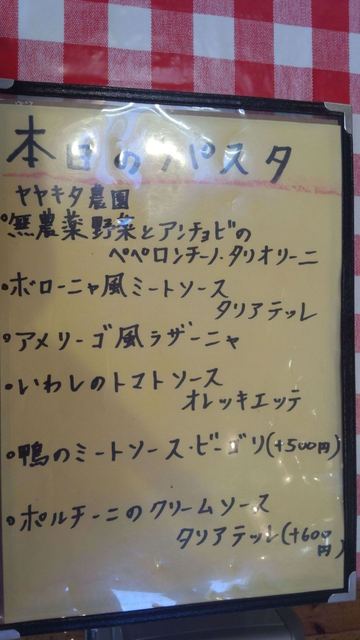 本日のパスタ
ヤヤキタ農園
•無農薬野菜とアンチョビの
ペペロンチーノ・タリオリーニ
•ボローニャ風ミートソース
タリアテッレ
•アメリーゴ風ラザーニャ
•いわしのトマトソース
オレッキエッテ
•鴨のミートソース・ビーゴリ(+500円)
•ポルチーニのクリームソース
タリアテッレ(+600円)